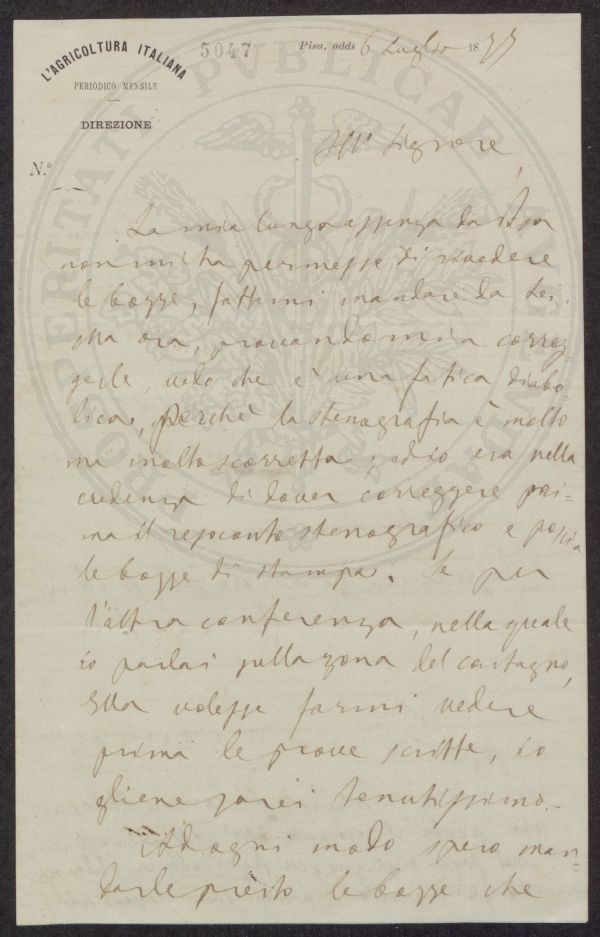 L'AGRICOLTURA ITALIANA
PERIODICO MENSILE
DIREZIONE
N.º
5047
Pisa, addì 6 Luglio 1877
Ill.º Signore,
La mia lunga assenza da Pisa
non mi ha permesse di rivedere
le bozze, fattemi mandare da Lei.
Ma ora, provandomi a correg
gerle, vedo che è una fatica diabo-
lica, perchè la stenografia è molto
ma molto scorretta; ed io era nella
credenza di dover correggere pri-
ma il resoconto stenografico e poscia
le bozze di stampa. Se per
l'altra conferenza, nella quale
io parlai sulla zona del castagno,
Ella volesse farmi vedere
prima le prove scritte, io
gliene sarei tenutissimo.
Ad ogni modo spero man-
darle presto le bozze che